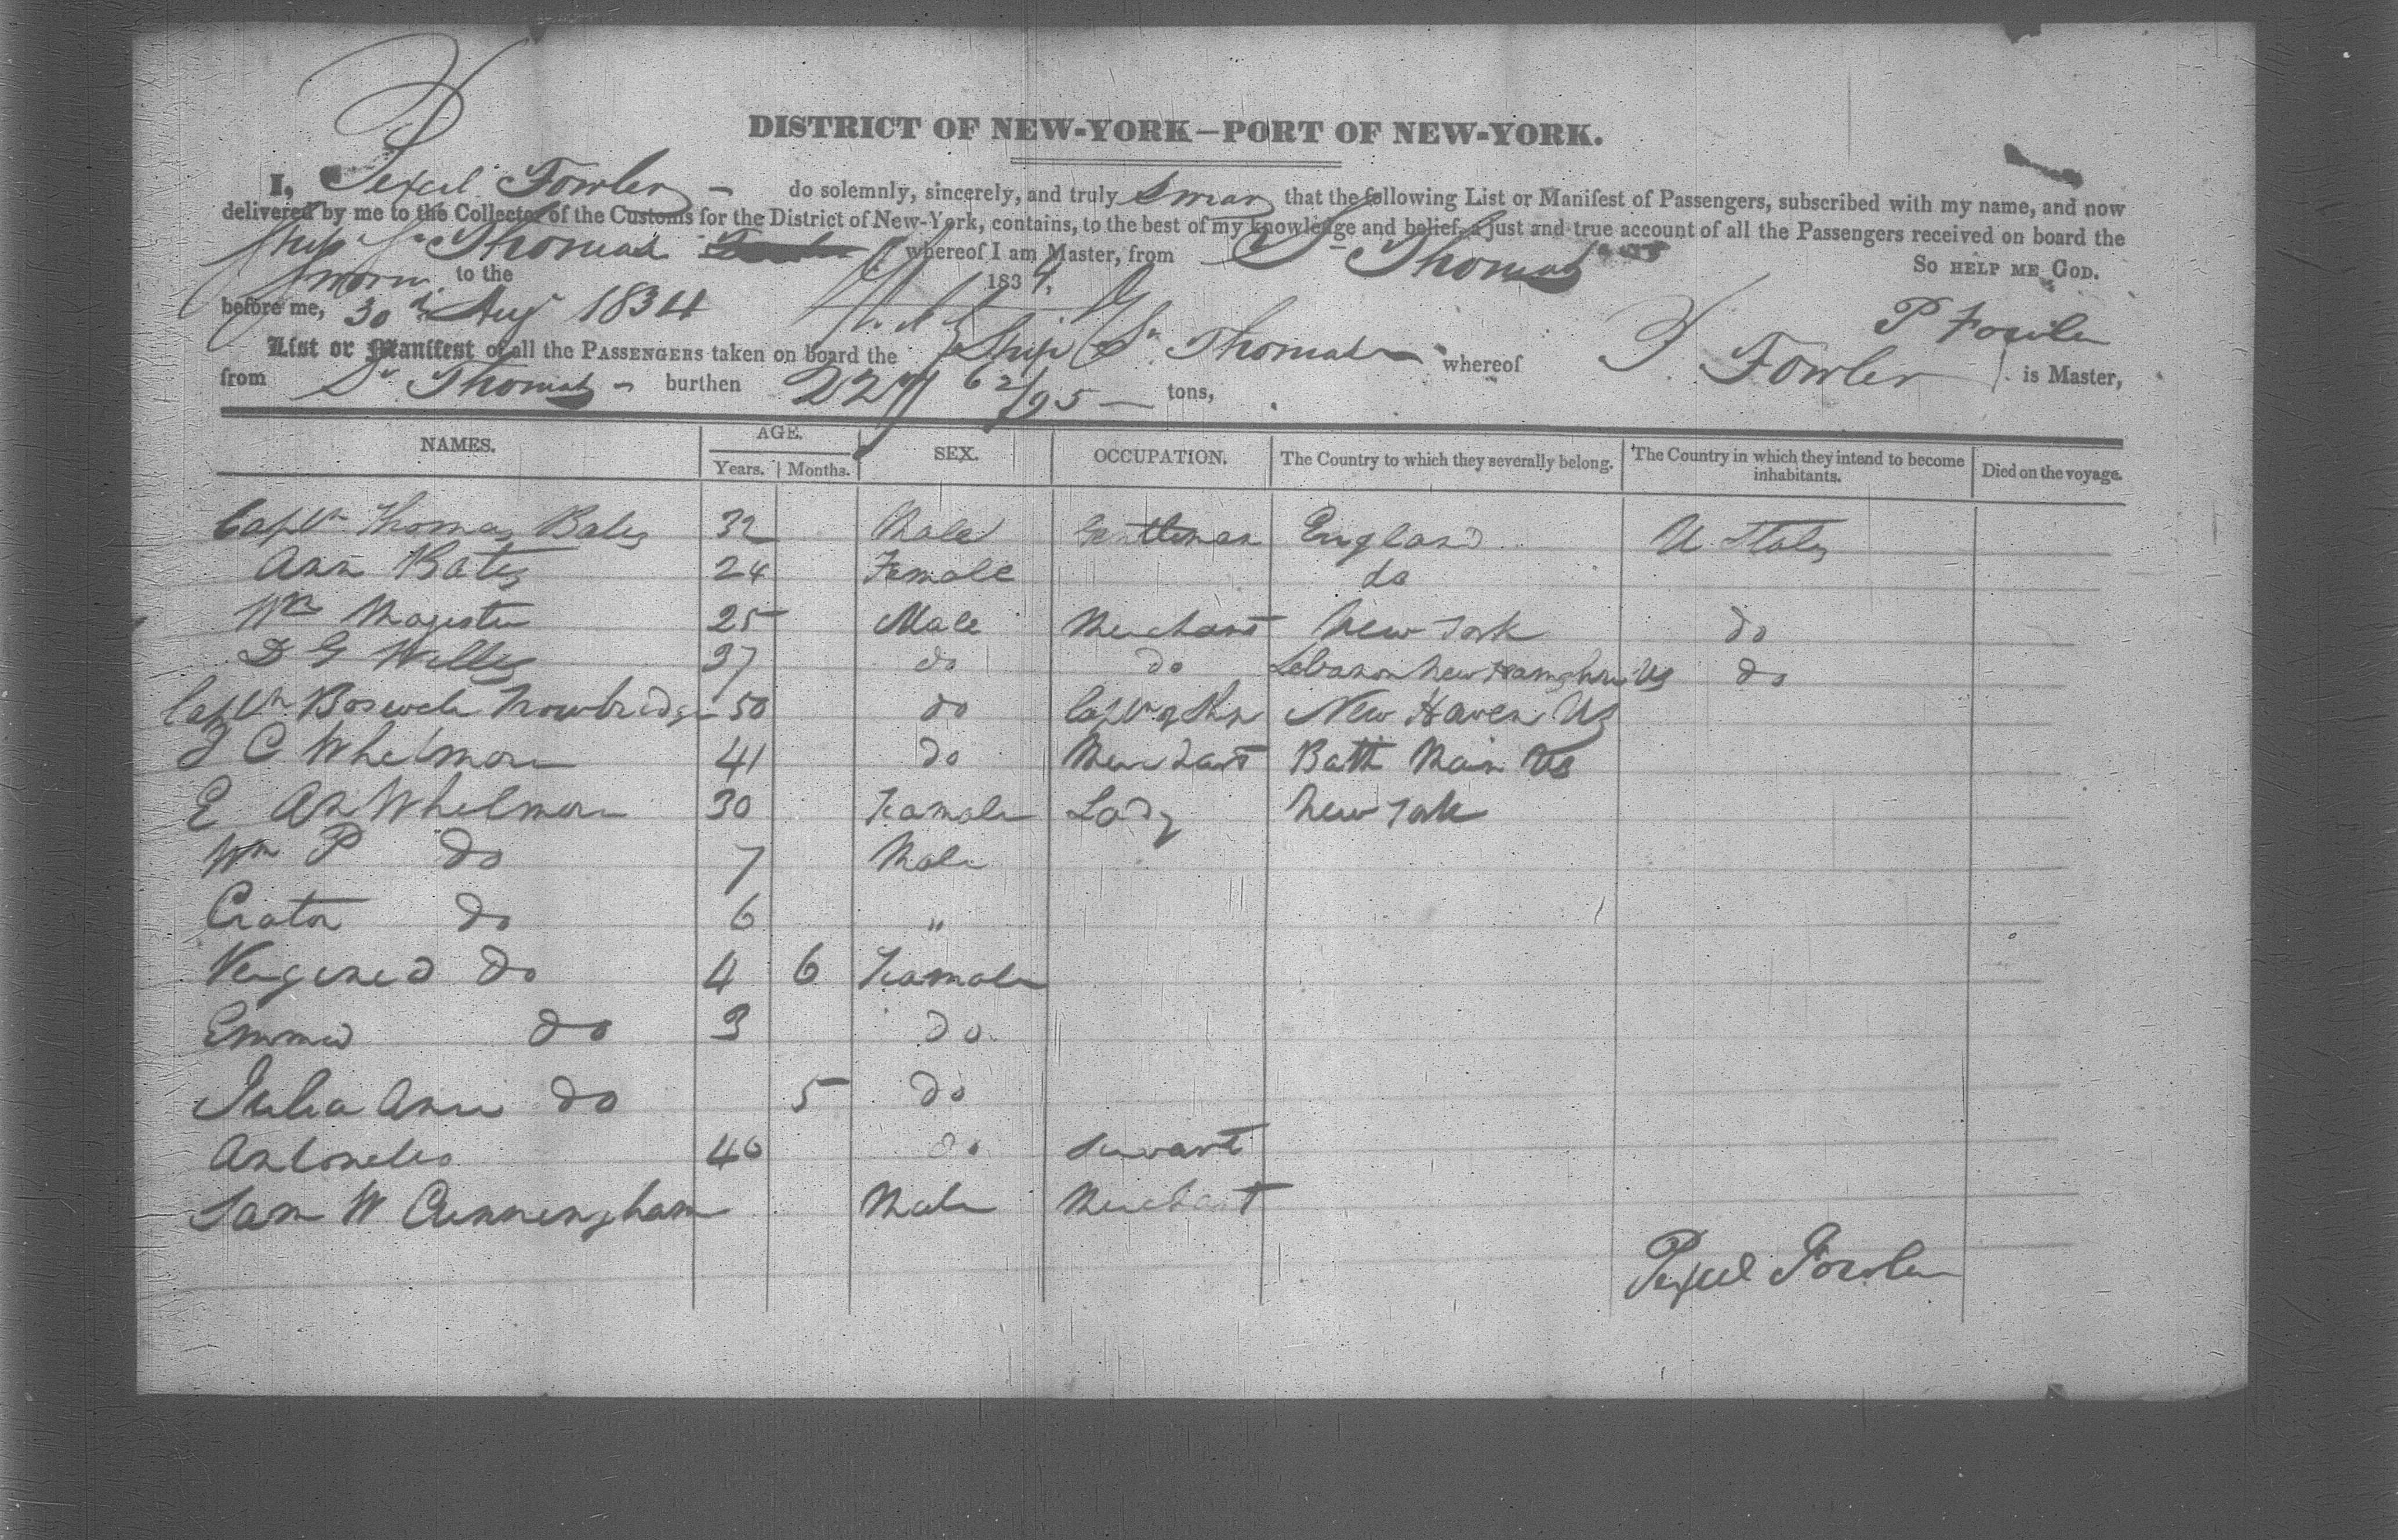 DISTRICT OF NEW-YORK—PORT OF NEW-YORK.
I, Pexcel Fowler - do solemnly, sincerely, and truly Swear that the following List or Manifest of Passengers, subscribed with my name, and now
delivered by me to the Collector of the Customs for the District of New-York, contains, to the best of my knowledge and belief, a just and true account of all the Passengers received on board the
Ship St Thomas whereof I am Master, from St Thomas
Sworn to the 1834, So HELP ME GOD.
before me, 30th Aug 1834 P Fowler
List or Manifest of all the PASSENGERS taken on board the Ship St Thomas whereof P. Fowler is Master,
from St Thomas - burthen 227 62/95 — tons,
NAMES. AGE. Years. Months. SEX. OCCUPATION. The Country to which they severally belong. The Country in which they intend to become inhabitants. Died on the voyage.
Captn Thomas Bates 32 Male Gentleman England U. States
Ann Bates 24 Female do
Wm Magister 25 Male Merchant New York do
D G Willis 37 do do Lebanon New Hampshire US do
Captn Boswell Trowbridge 50 do Captn of Ship New Haven US
J C Whelmore 41 do Merchant Bath Main US
E An Whelmore 30 Feamale Lady New York
Wm P do 7 Male
do 6 "
Vergined do 4 6 Feamale
Emma do 3 do
Julia Ann do 5 do
40 do Servant
Sam W Cunningham Male Merchant
Pexcel Fowler